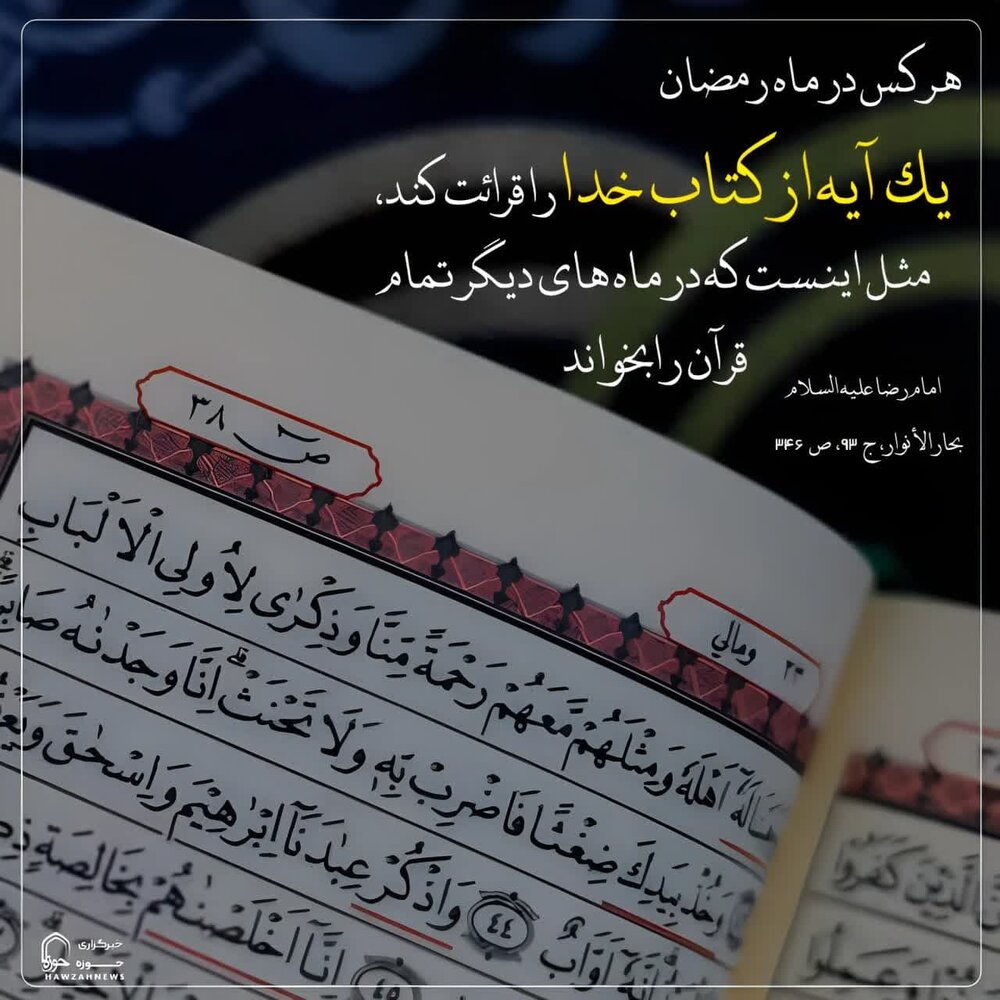 هر کس در ماه رمضان
يك آيه از كتاب خدا را قرائت کند،
مثل اینست که در ماه های دیگر تمام
قرآن را بخواند
امام رضا علیه السلام
بحار الأنوار، ج ۹۳، ص ۳۴۶
صۤ ٣٨
ومالي ٢٣
اَهْلَهٗ وَمِثْلَهُمْ مَّعَهُمْ رَحْمَةً مِّنَّا وَذِكْرٰى لِاُولِى الْاَلْبَابِ
وَخُذْ بِيَدِكَ ضِغْثًا فَاضْرِبْ بِّهٖ وَلَا تَحْنَثْ اِنَّا وَجَدْنٰهُ
اَوَّابٌ ٤٤ وَاذْكُرْ عِبٰدَنَآ اِبْرٰهِيْمَ وَاِسْحٰقَ
اِنَّآ اَخْلَصْنٰهُمْ بِخَالِصَةٍ
٤٥
الَّذِيْنَ كَفَرُوْا
خبرگزاری
حوزه
HAWZAHNEWS